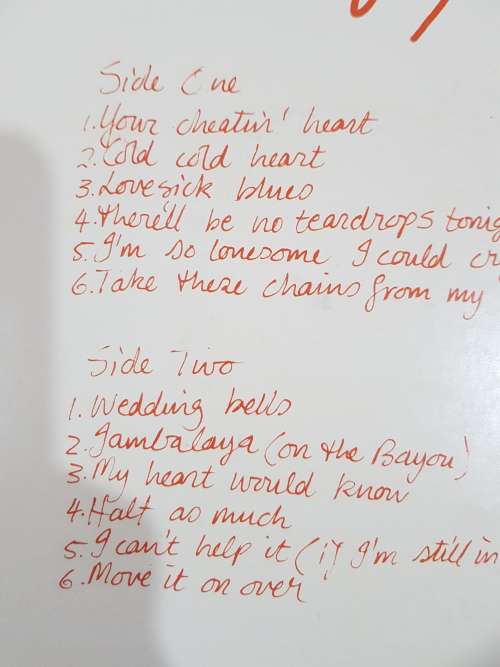 Side One
1. Your cheatin' heart
2. Cold cold heart
3. Lovesick blues
4. There'll be no teardrops tonig
5. I'm so lonesome I could cr
6. Take these chains from my
Side Two
1. Wedding bells
2. Jambalaya (on the Bayou)
3. My heart would know
4. Half as much
5. I can't help it (if I'm still in
6. Move it on over